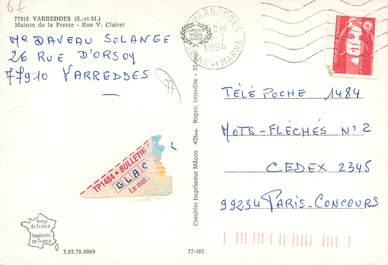 77910 VARREDDES (S.-et-M.)
Maison de la Presse - Rue V. Clairet
Me DAVEAU SOLANGE
26 RUE D'ORSOY
77910 VARREDDES
VARREDDES
1994
SEINE-et-MARNE
TÉLÉ POCHE 1484
MOTS-FLÉCHÉS N°2
CEDEX 2345
99234 PARIS-CONCOURS
TP1484 • BULLETIN
G.L.A.C
Le mot
Combier Imprimeur Mâcon
Repro. interdite
Image de France
Imprimée en France
3.93.78.0069
77-485